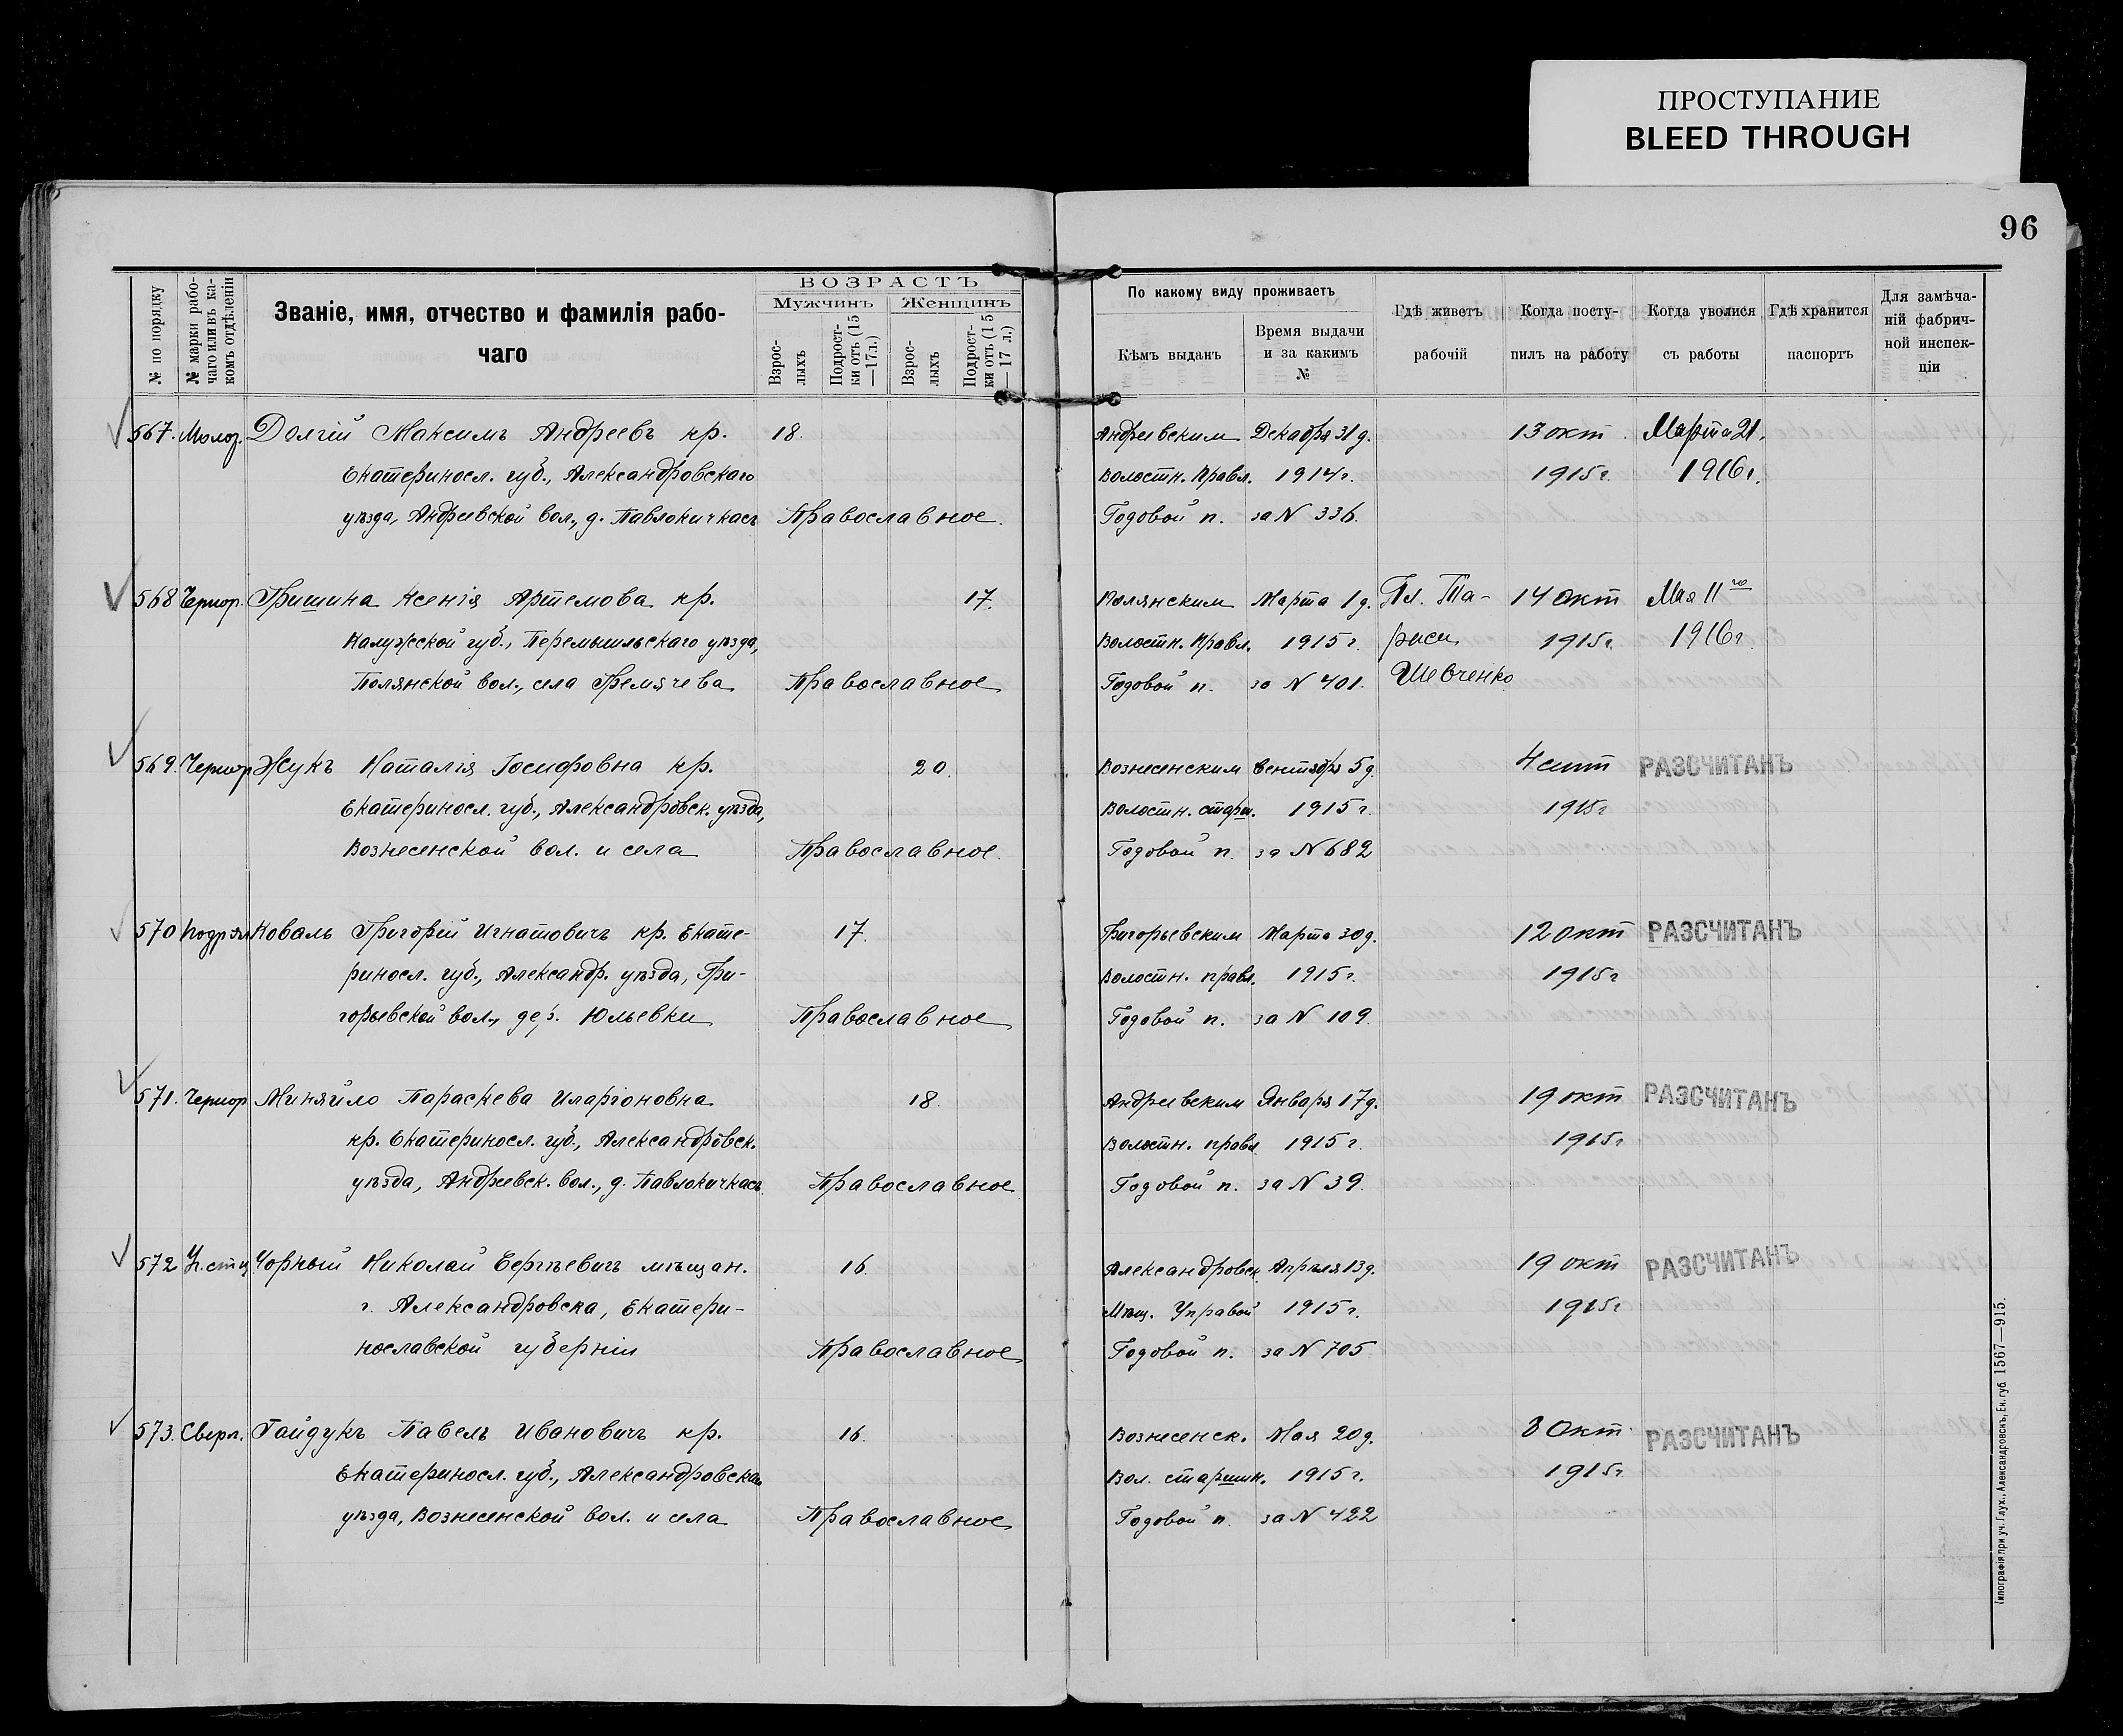 ПРОСТУПАНИЕ
BLEED THROUGH
96
№ по порядку
№ марки рабо-
чаго или въ ка-
комъ отдѣленіи
Званіе, имя, отчество и фамилія рабо-
чаго
ВОЗРАСТЪ
Мужчинъ
Женщинъ
Взрос-
лыхъ
Подрост-
ки отъ (15
—17л.)
Взрос-
лыхъ
Подрост-
ки отъ (15
—17 л.)
По какому виду проживаетъ
Кѣмъ выданъ
Время выдачи
и за какимъ
№
Гдѣ живетъ
рабочій
Когда посту-
пилъ на работу
Когда уволися
съ работы
Гдѣ хранится
паспортъ
Для замѣча-
ній фабрич-
ной инспек-
ціи
567. Молот. Долгій Максимъ Андреевъ кр. 18. Андреевским Декабря 31 д. 13 окт. Марта 21.
Екатериносл. губ., Александровскаго Волостн. Правл. 1914 г. 1915 г. 1916 г.
уѣзда, Андреевской вол., д. Павлокичкасъ Православное. Годовой п. за N 336.
568 Чернор. Гришина Ксенія Артемова кр. 17. Полянским Марта 1 д. Пл. Та- 14 окт Мая 11го
Калужской губ., Перемышльскаго уѣзда, Волостн. Правл. 1915 г. раси 1915 г. 1916 г
Полянской вол., села Гремячева Православное Годовой п. за N 401. Шевченко
569. Чернор Жукъ Наталія Іосифовна кр. 20. Вознесенским Сентября 5 д. 4 сент РАЗСЧИТАНЪ
Екатериносл. губ., Александровск. уѣзда, Волостн. старш. 1915 г. 1915 г
Вознесенской вол. и села Православное. Годовой п. за N 682
570 Подрзл Коваль Григорій Игнатовичъ кр. Екате- 17. Григорьевским Марта 30 д. 12 окт РАЗСЧИТАНЪ
риносл. губ., Александр. уѣзда, Гри- Волостн. правл. 1915 г. 1915 г
горьевской вол., дер. Юльевки Православное Годовой п. за N 109.
571. Чернор Миняйло Параскева Иларіоновна 18. Андреевским Января 17 д. 19 окт РАЗСЧИТАНЪ
кр. Екатериносл. губ., Александровск. Волостн. правл 1915 г. 1915 г
уѣзда, Андреевск. вол., д. Павлокичкасъ Православное Годовой п. за N 39.
572 Чорный Николай Сергѣевичъ мѣщан. 16. Александровск. Апрѣля 13 д. 19 окт РАЗСЧИТАНЪ
г. Александровска, Екатери- Мѣщ. Управой 1915 г. 1915 г
нославской губерніи Православное Годовой п. за N 705
573. Сверл. Гайдукъ Павелъ Ивановичъ кр. 16. Вознесенск. Мая 20 д. 8 Окт. РАЗСЧИТАНЪ
Екатериносл. губ., Александровскаго Вол. старшин. 1915 г. 1915 г.
уѣзда, Вознесенской вол. и села Православное Годовой п. за N 422
Типографія при уч. Глух., Александровскъ, Ек. губ 1567—915.